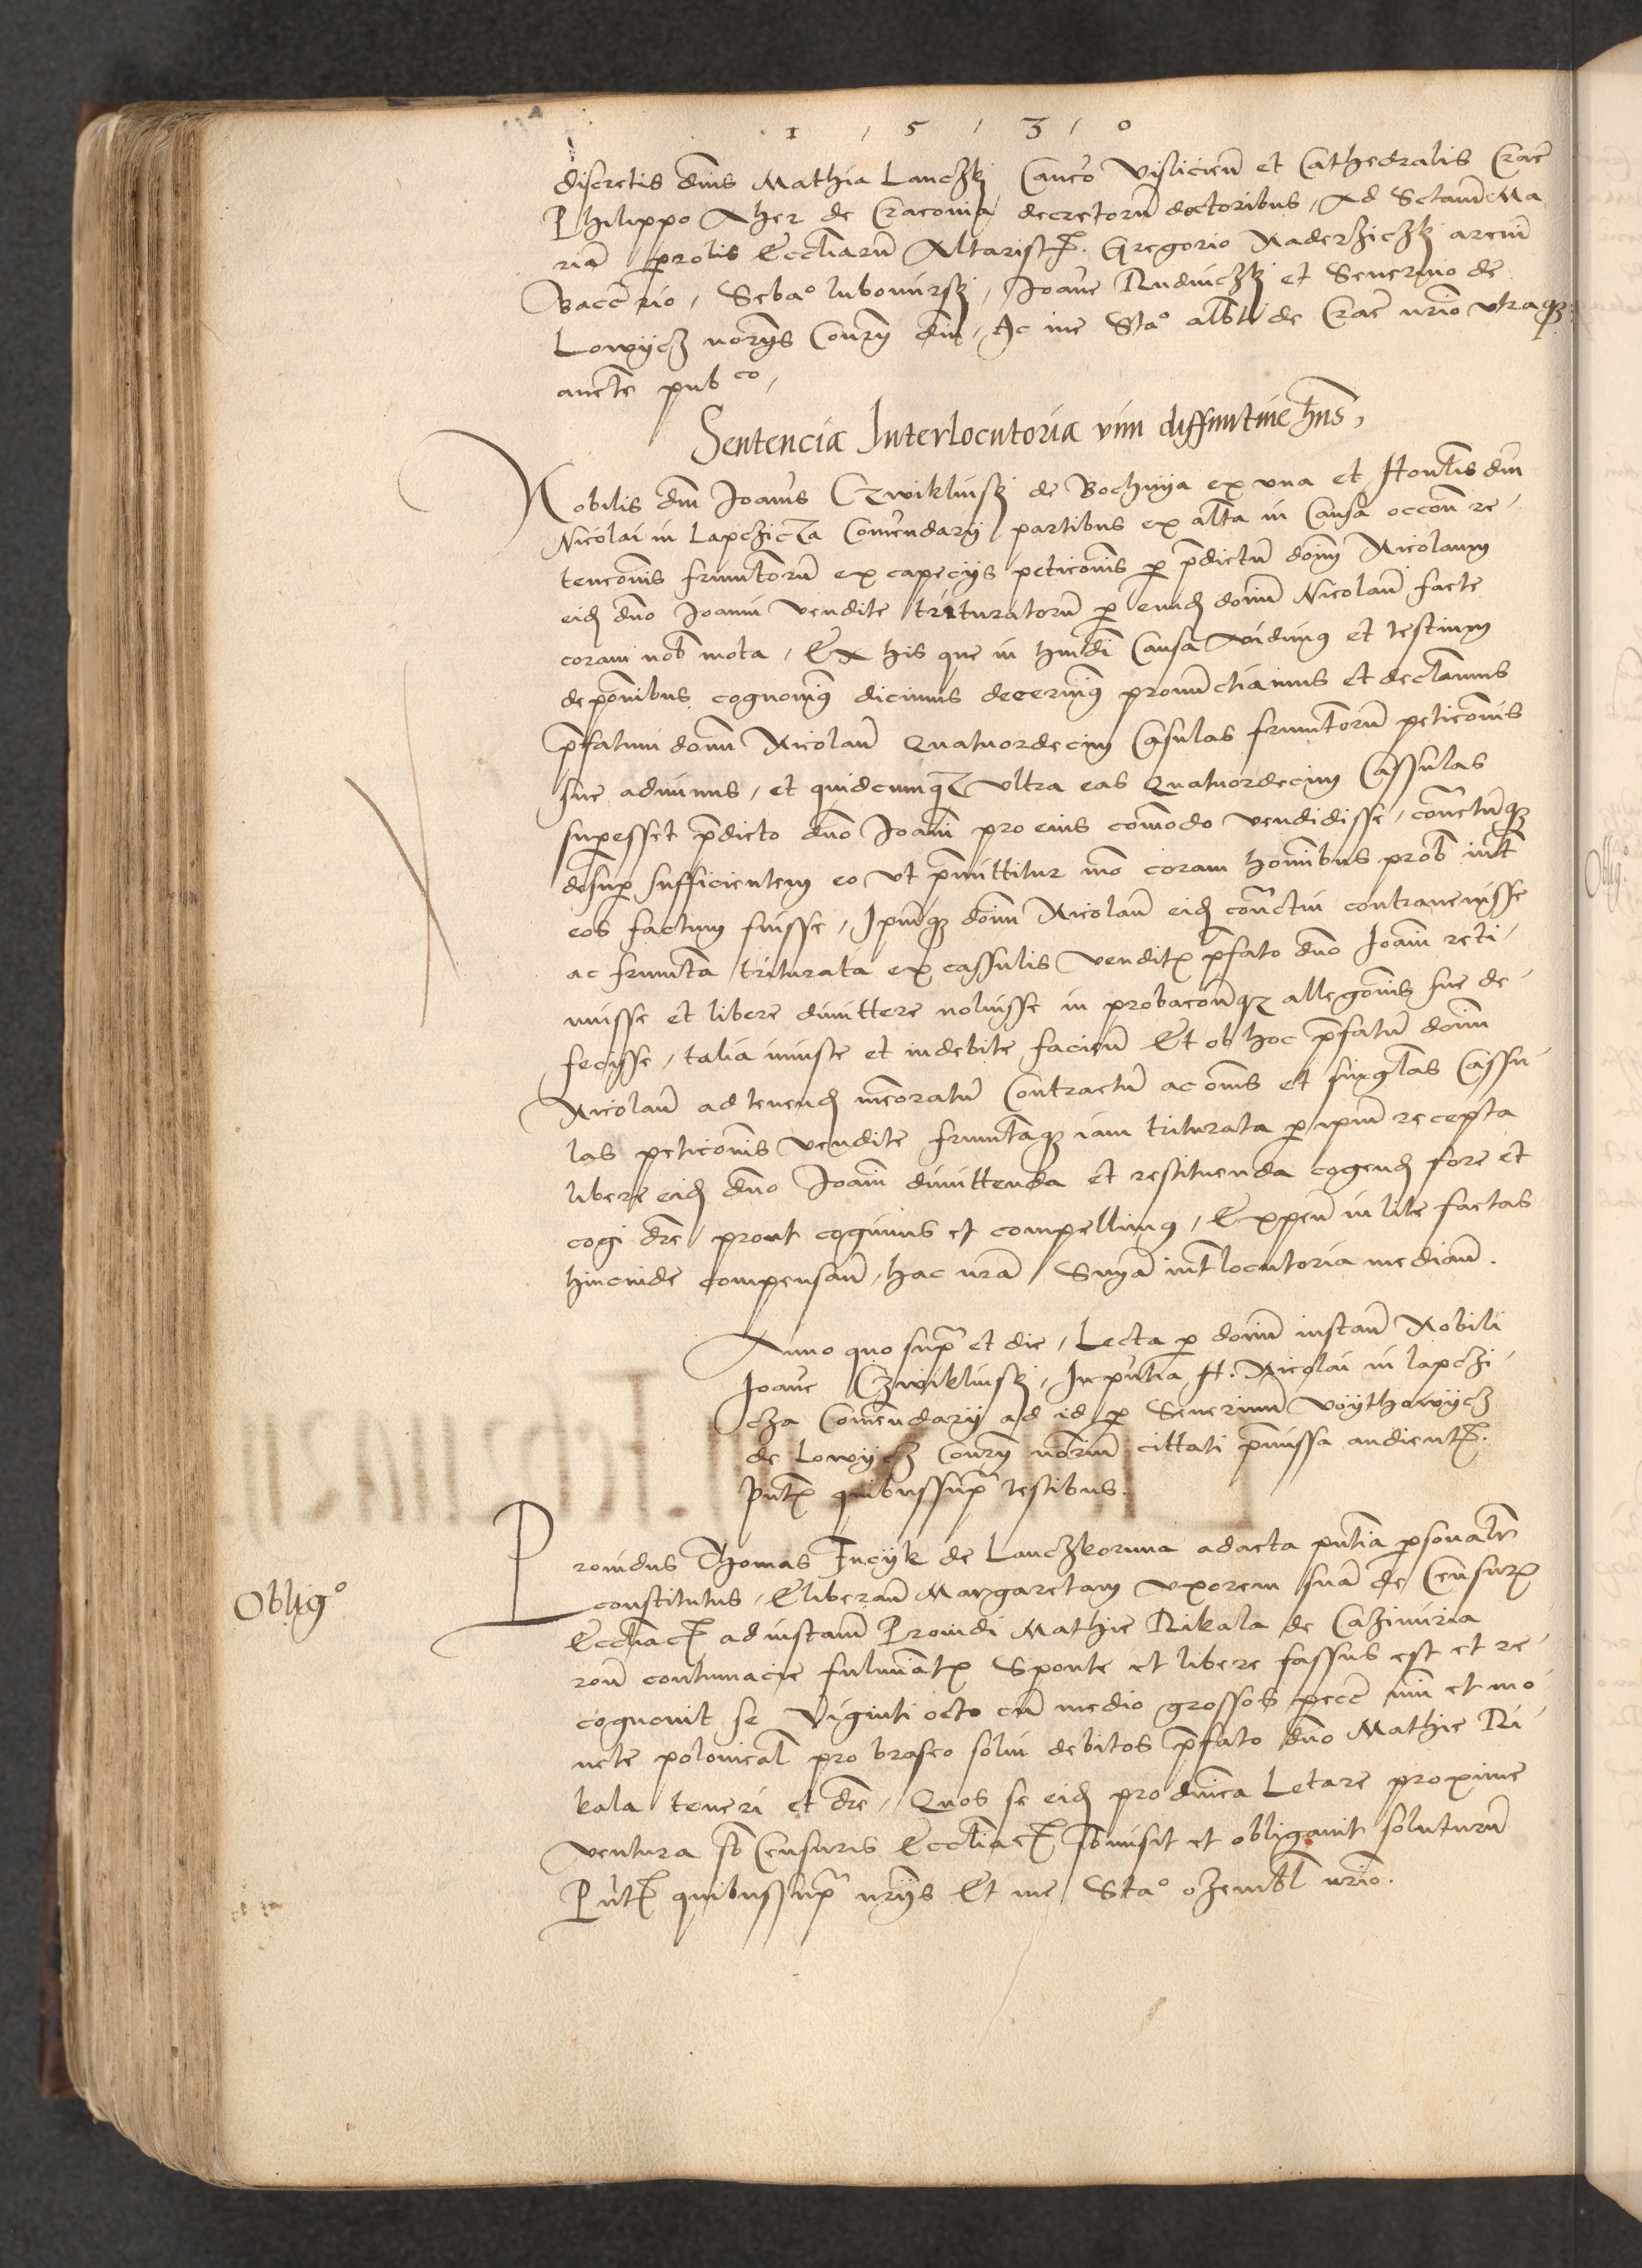 1 , 5 , 3 , 0
discretis dnis Mathia Lanczkj Canco Vislicien et Cathedralis Crac
Philippo Xher de Cracovia decretorum doctoribus, Ad Sctam Ma
riam prolis Eccliarum Altaristis. Gregorio Naderziczkj arcium
Baccrio, Seba° lubomirskj, Joane Rudniczkj et Severino de
Lowycz notrys Conrij dm, Ac me Sta° alberti de Crac nrio utraque
aucte pub co,
Sentencia Interlocutoria vim diffinitive hns,
Nobilis dm Joanis Czwiklinskj de Bochnya ex una et Honlis dm
Nicolai in Lapczicza Comendarij partibus ex altra in Causa occone re
tenconis frumtorum ex capecijs peticonis per predictum domm Nicolaum
eidem dno Joanni vendite trituratorum per eundem domm Nicolaum facte
coram nob mota, Ex his que in hmodi Causa vidimus et testium
deponibus cognovimus dicimus decernimus pronunctiamus et declaramus
prefatum domm Nicolaum Quatuordecim Casulas frumtorum peticonis
sue ad, et quidcunque ultra eas Quatuordecim Cassulas
superesset predicto dno Joanni pro eius comodo vendidisse, contractumque
desuper sufficientem eo ut premittitur mo coram hominibus prob inter
eos factum fuisse, Ipsumque domm Nicolaum eidem contractui contravenisse
ac frumta triturata ex cassulis venditis prefato dno Joanni reti
nuisse et libere dimittere noluisse in probaconeque allegonis sue de
fecisse, talia iniuste et indebite faciendum Et ob hoc prefatum domm
Nicolaum ad tenendum memoratum Contractum ac omnes et singulas Cassu
las peticonis vendite frumtaque iam triturata per ipsum recepta
libere eidem dno Joanni dimittenda et restituenda cogendum fore et
cogi dre prout cogimus et compellimus, Expen in lite factas
hincinde compensan, hac nram Sniam interlocutoria median.
Anno quo supra et die, Lecta per domm instan Nobili
Joane Czwiklinskj, In pntia H. Nicolai in lapczi
cza Comendarij ad id per Severinum Voythowycz
de Lowycz Conrij notrium cittati premissa audientis.
Pntibus quibus supra testibus.
Oblig°
Providus Thomas Fucijk de Lanczkorunna ad acta pntia personaliter
constitutus, Eliberan Margaretam uxorem suam de Censuris
Eccliacis ad instam Providi Mathie Rikala de Cazimiria
ron contumacie fulminatis Sponte et libere fassus est et re
cognovit se Viginti octo cum medio grossos pecc num et mo
nete polonicalis pro braseo solvi debitos prefato dno Mathie Ri
kala teneri et dre, Quos se eidem pro dnica Letare proxime
ventura sb Censuris Eccliacis sbmisit et obligavit soluturum
Pntibus quibus supra nrijs Et me Sta° nrio.